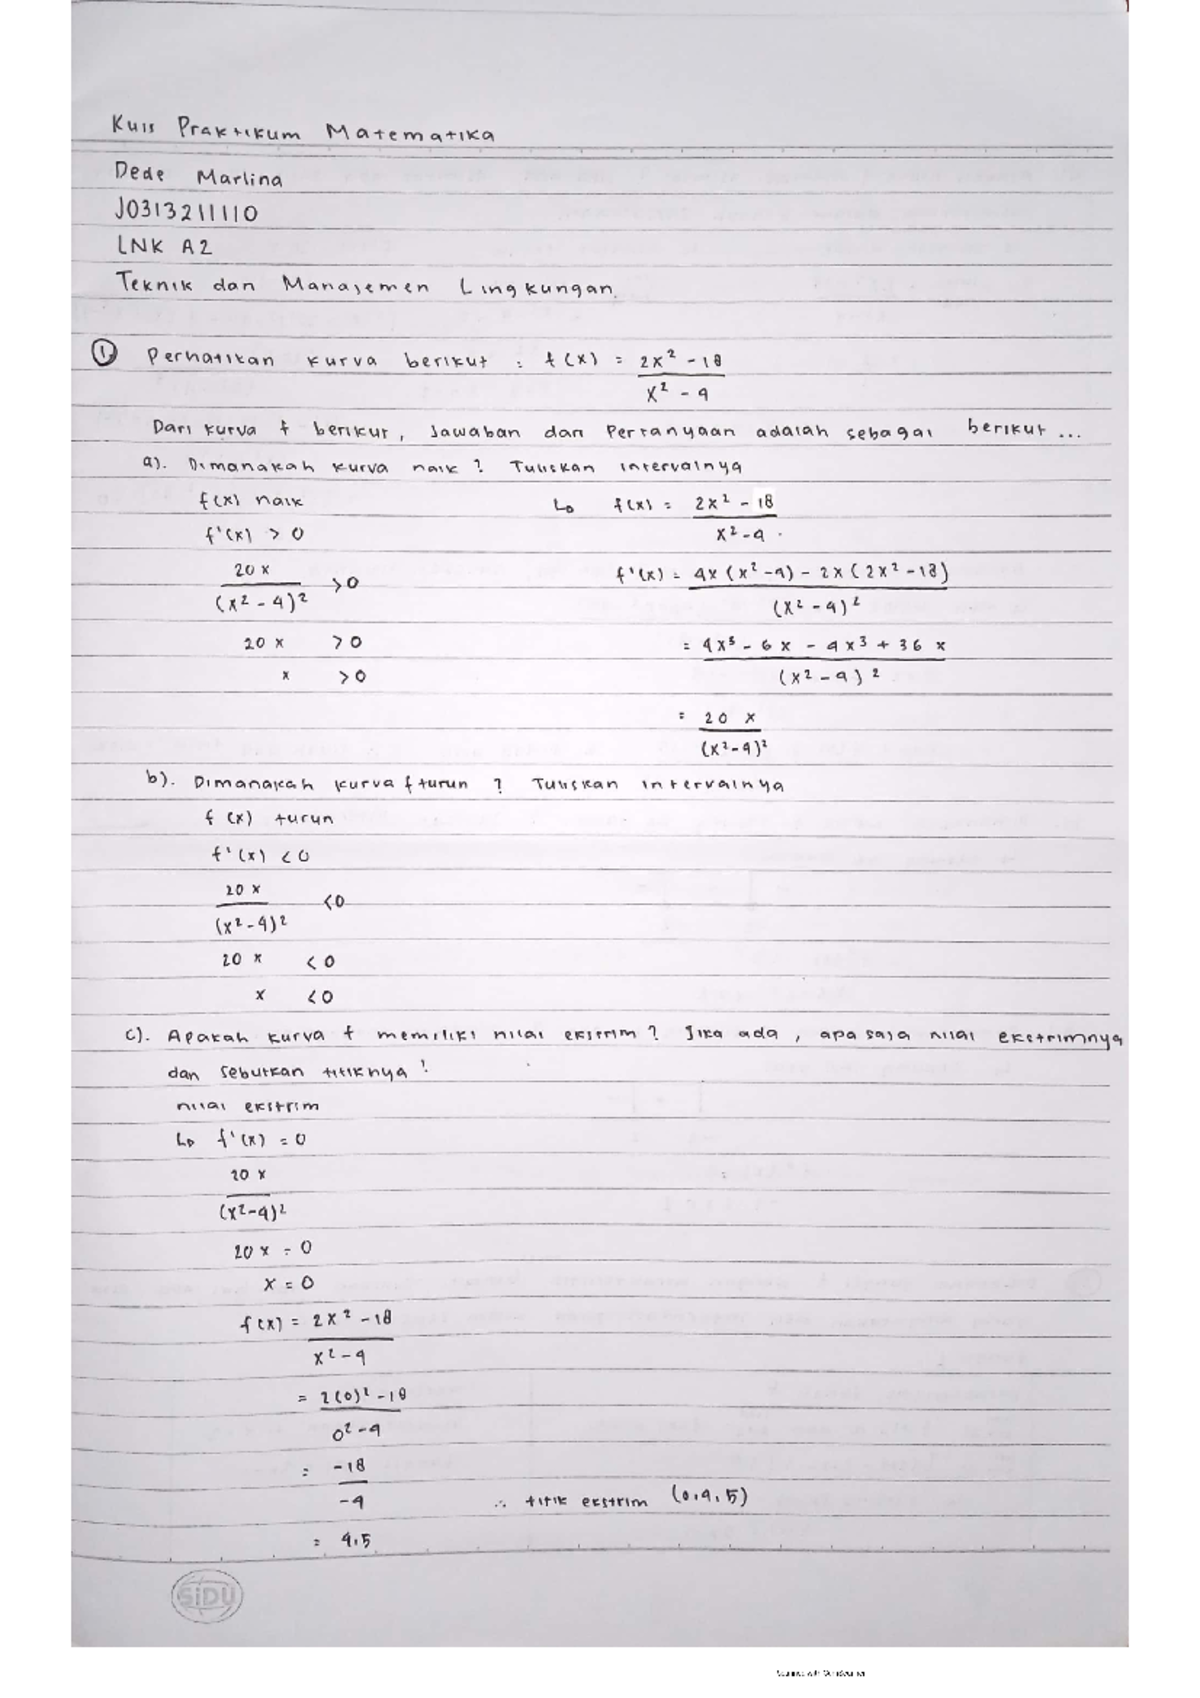 Kuis Praktikum Matematika
Dede Marlina
J0313211110
LNK A2
Teknik dan Manajemen Lingkungan.
1. Perhatikan kurva berikut : f(x) = 2x² - 18
x² - 4
Dari kurva f berikut, Jawaban dari Pertanyaan adalah sebagai berikut ...
a). Dimanakah kurva naik ? Tuliskan intervalnya
f(x) naik ↳ f(x) = 2x² - 18
f'(x) > 0 x² - 4 .
20 x > 0 f'(x) = 4x (x² - 4) - 2x (2x² - 18)
(x² - 4)² (x² - 4)²
20 x > 0 = 4x³ - 6x - 4x³ + 36 x
x > 0 (x² - 4)²
= 20 x
(x² - 4)²
b). Dimanakah kurva f turun ? Tuliskan intervalnya
f (x) turun
f'(x) < 0
20 x < 0
(x² - 4)²
20 x < 0
x < 0
c). Apakah kurva f memiliki nilai ekstrim ? Jika ada , apa saja nilai ekstrimnya
dan sebutkan titiknya !
nilai ekstrim
↳ f'(x) = 0
20 x
(x² - 4)²
20 x = 0
x = 0
f(x) = 2x² - 18
x² - 4
= 2(0)² - 18
0² - 4
= -18
-4 ∴ titik ekstrim (0,4,5)
= 4,5
SiDU
Scanned with CamScanner